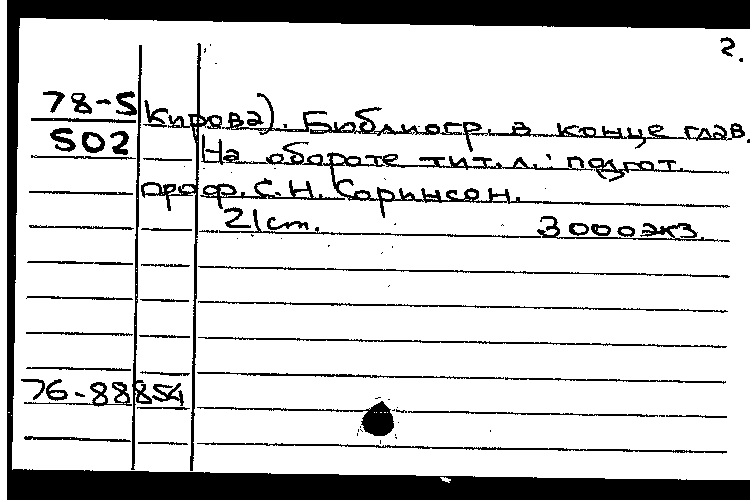 2.
78-5 Кирова). Библиогр. в конце глав.
502 На обороте тит. л.: подгот.
проф. С. Н. Соринсон.
21 cm. 3000 экз.
76-88854